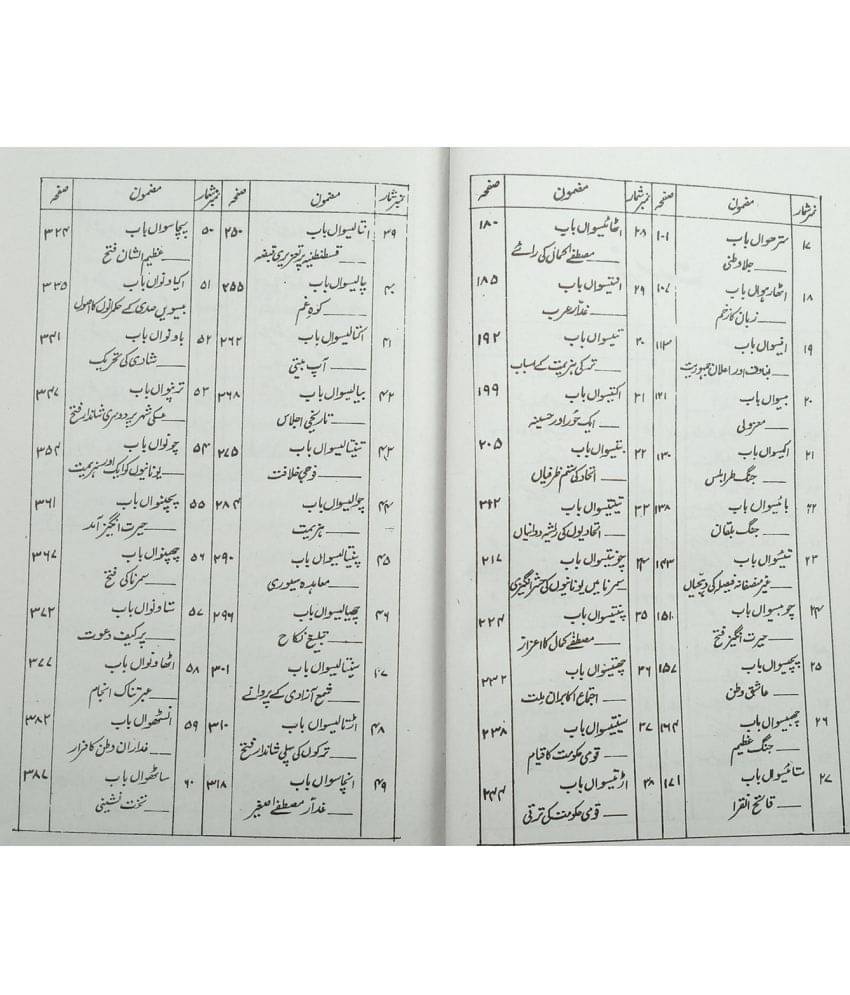 نمبر شمار مضمون صفحہ
۱۷ سترھواں باب ۱۰۱
جلا وطنی
۱۸ اٹھارہواں باب ۱۰۷
زبان کا زخم
۱۹ انیسواں باب ۱۱۳
بغاوت اور اعلان جمہوریت
۲۰ بیسواں باب ۱۲۱
معزولی
۲۱ اکیسواں باب ۱۳۰
جنگ طرابلس
۲۲ بائیسواں باب ۱۳۸
جنگ بلقان
۲۳ تئیسواں باب ۱۴۳
غیر منصفانہ فیصلہ کی دھجیاں
۲۴ چوبیسواں باب ۱۵۱
حیرت انگیز فتح
۲۵ پچیسواں باب ۱۵۷
عاشق وطن
۲۶ چھبیسواں باب ۱۶۴
جنگ عظیم
۲۷ ستائیسواں باب ۱۷۱
فاتح القرا
نمبر شمار مضمون صفحہ
۲۸ اٹھائیسواں باب ۱۸۰
مصطفےٰ کمال کی رائے
۲۹ انتیسواں باب ۱۸۵
غدار عرب
۳۰ تیسواں باب ۱۹۲
ترک کی ہزیمت کے اسباب
۳۱ اکتیسواں باب ۱۹۹
ایک حُور اور حسینہ
۳۲ بتیسواں باب ۲۰۵
اتحاد کی ستم ظرفیاں
۳۳ تینتیسواں باب
اتحادیوں کی ریشہ دوانیاں
۳۴ چونتیسواں باب ۲۱۷
سمرنا میں یونانیوں کی حشر انگیزی
۳۵ پینتیسواں باب ۲۲۴
مصطفےٰ کمال کا اعزاز
۳۶ چھتیسواں باب ۲۳۲
اجتماع اکابران ملت
۳۷ سینتیسواں باب ۲۳۸
قومی حکومت کا قیام
۳۸ اڑتیسواں باب ۲۴۴
قومی حکومت کی ترقی
نمبر شمار مضمون صفحہ
۳۹ انتالیسواں باب ۲۵۰
قسطنطنیہ پر تعزیری قبضہ
۴۰ چالیسواں باب ۲۵۵
کوہ غم
۴۱ اکتالیسواں باب ۲۶۲
آپ بیتی
۴۲ بیالیسواں باب ۲۶۸
تاریخی اجلاس
۴۳ تینتالیسواں باب ۲۷۵
فوجی خلافت
۴۴ چوالیسواں باب ۲۸۴
ہزیمت
۴۵ پینتالیسواں باب ۲۹۰
معاہدہ سیوری
۴۶ چھیالیسواں باب ۲۹۶
تبلیغ نکاح
۴۷ سینتالیسواں باب ۳۰۱
شمع آزادی کے پروانے
۴۸ اڑتالیسواں باب ۳۱۰
ترکوں کی پہلی شاندار فتح
۴۹ انچاسواں باب ۳۱۸
غدار مصطفےٰ صغیر
نمبر شمار مضمون صفحہ
۵۰ پچاسواں باب ۳۲۴
عظیم الشان فتح
۵۱ اکیاونواں باب ۳۳۵
بیسویں صدی کے حکمرانوں کا اصول
۵۲ باونواں باب ۳۴۱
شادی کی تحریک
۵۳ ترپنواں باب ۳۴۷
شہر پر دوسری شاندار فتح
۵۴ چونواں باب ۳۵۴
یونانیوں کو ایک اور ہزیمت
۵۵ پچپنواں باب ۳۶۱
حیرت انگیز آمد
۵۶ چھپنواں باب ۳۶۷
سمرنا کی فتح
۵۷ ستاونواں باب ۳۷۲
پرکیف دعوت
۵۸ اٹھاونواں باب ۳۷۷
عبرتناک انجام
۵۹ انسٹھواں باب ۳۸۲
غداران وطن کا فرار
۶۰ ساٹھواں باب ۳۸۷
تخت نشینی